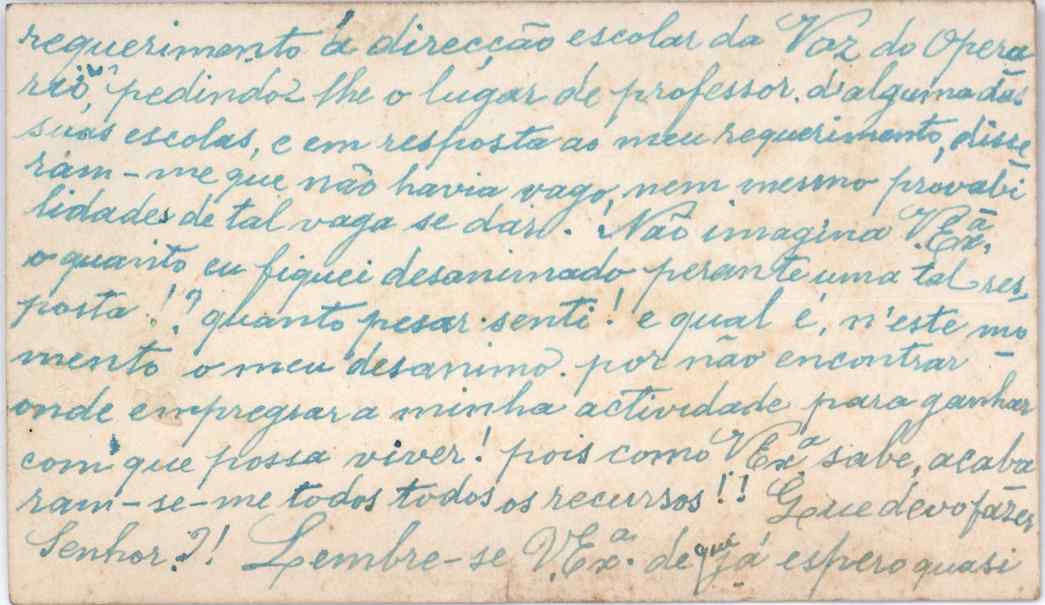 requerimento á direcção escolar da Voz do Opera
rio, pedindo-lhe o lugar de professor d'alguma das
suas escolas, e em resposta ao meu requerimento, disse
ram-me que não havia vago, nem mesmo provabi
lidades de tal vaga se dar! Não imagina V. Exª.
o quanto eu fiquei desanimado perante uma tal res
posta!? quanto pesar senti! e qual é, n'este mo
mento o meu desanimo. por não encontrar
onde empregsar a minha actividade para ganhar
com que possa viver! pois como V. Exª sabe, acaba
ram-se-me todos todos os recursos!! Que devo fazer
Senhor?! Lembre-se V. Exª. de que já espero quasi